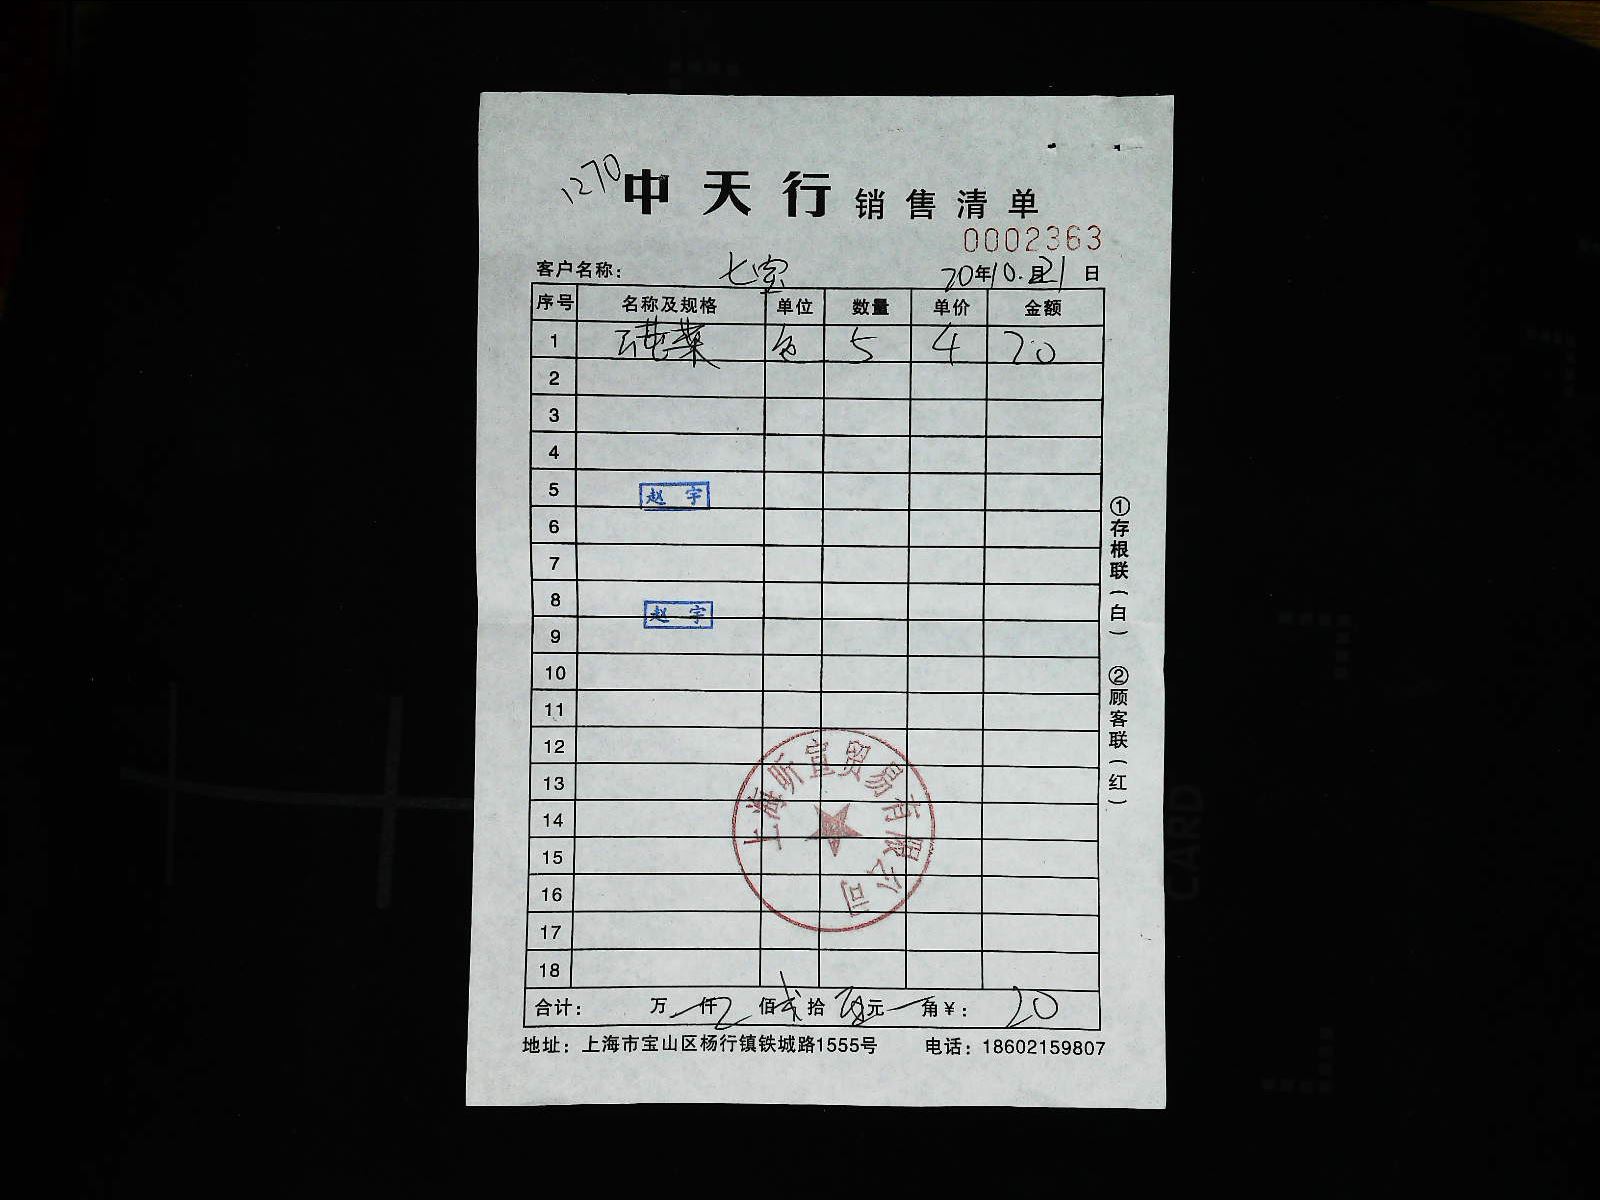 1270
中天行 销售清单
0002363
客户名称： 七宝 20年10.月21日
序号 名称及规格 单位 数量 单价 金额
1 莼菜 包 5 4 20
2
3
4
5 赵 宇
6
7
8
赵 宇
9
10
11
12
13
14
15
16
17
18
上海昕宜贸易有限公司
合计： 万 仟 佰 弎 拾 元 角 ¥： 20
地址：上海市宝山区杨行镇铁城路1555号 电话：18602159807
①存根联（白） ②顾客联（红）
CARD